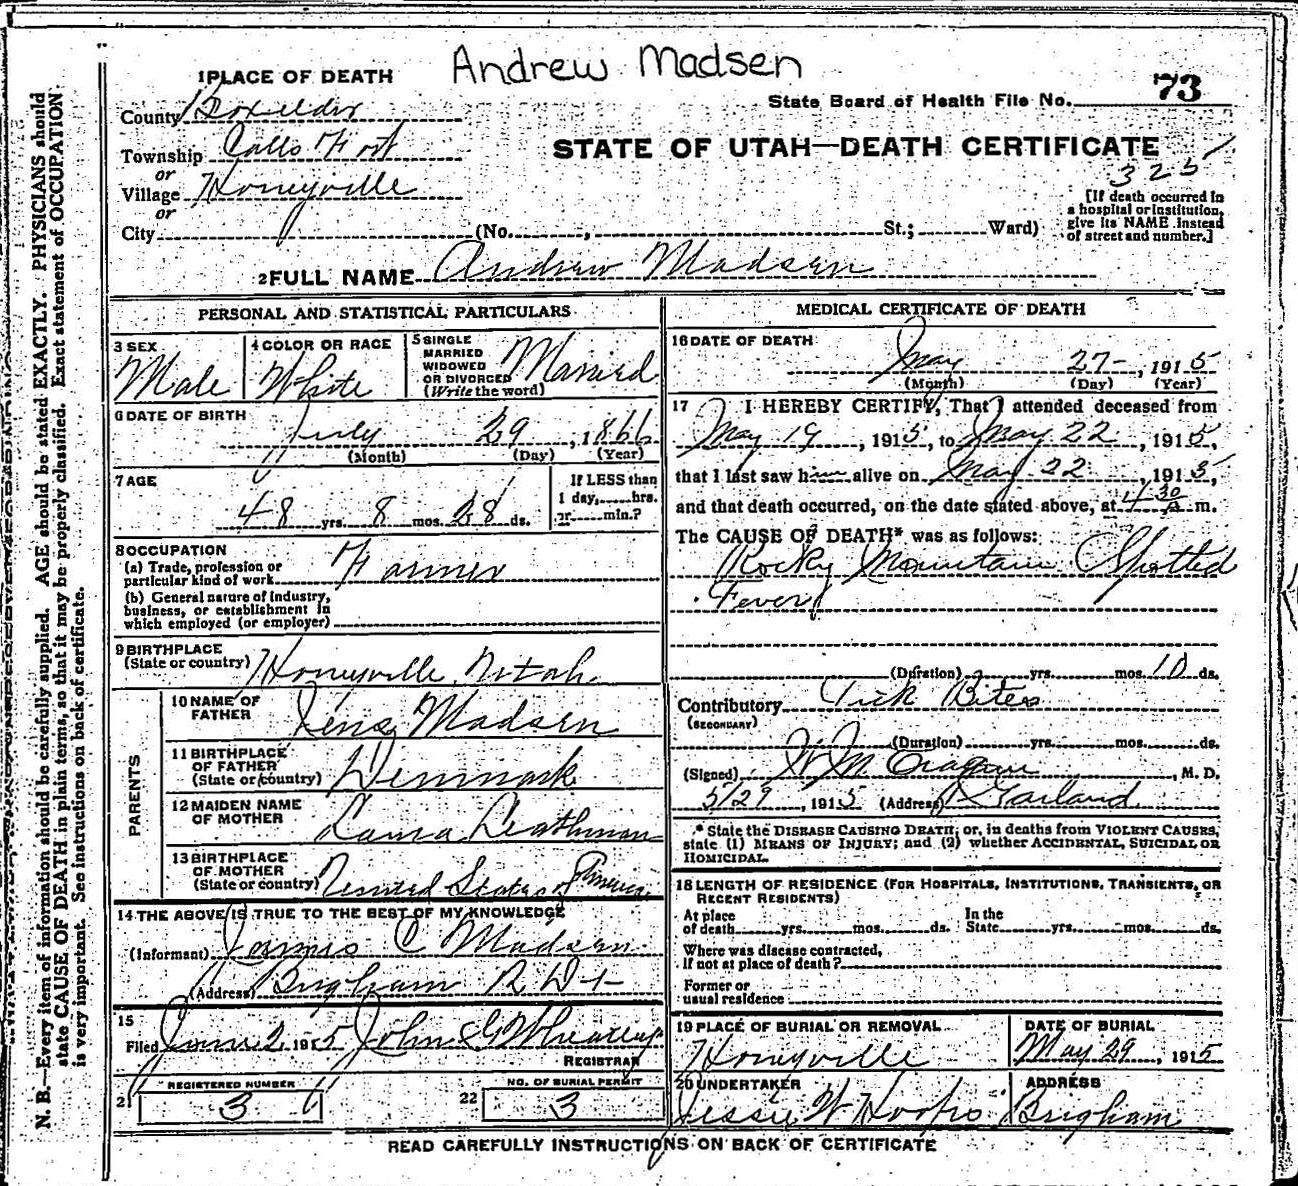 Andrew Madsen
1 PLACE OF DEATH
County Boxelder
State Board of Health File No. 73
Township Calls Fort
STATE OF UTAH—DEATH CERTIFICATE
or
325
Village Honeyville
or
[If death occurred in
a hospital or institution,
give its NAME instead
of street and number.]
City (No. , St.; Ward)
2 FULL NAME Andrew Madsen
PERSONAL AND STATISTICAL PARTICULARS
3 SEX
Male
4 COLOR OR RACE
White
5 SINGLE
MARRIED
WIDOWED
OR DIVORCED
(Write the word)
Married
6 DATE OF BIRTH
July 29, 1866
(Month) (Day) (Year)
7 AGE
48 yrs. 8 mos. 28 ds.
If LESS than
1 day, hrs.
or min.?
8 OCCUPATION
(a) Trade, profession or
particular kind of work Farmer
(b) General nature of industry,
business, or establishment in
which employed (or employer)
9 BIRTHPLACE
(State or country) Honeyville Utah
PARENTS
10 NAME OF
FATHER Jens Madsen
11 BIRTHPLACE
OF FATHER
(State or country) Denmark
12 MAIDEN NAME
OF MOTHER Laura Leathman
13 BIRTHPLACE
OF MOTHER
(State or country) United States of America
14 THE ABOVE IS TRUE TO THE BEST OF MY KNOWLEDGE
(Informant) James C Madsen
(Address) Brigham R D 1
15
Filed June 2, 1915 John G Wheatley
REGISTRAR
REGISTERED NUMBER
21 3
NO. OF BURIAL PERMIT
22 3
MEDICAL CERTIFICATE OF DEATH
16 DATE OF DEATH
May 27, 1915
(Month) (Day) (Year)
17 I HEREBY CERTIFY, That I attended deceased from
May 19, 1915, to May 22, 1915,
that I last saw him alive on May 22, 1915,
and that death occurred, on the date stated above, at 4 30 m.
The CAUSE OF DEATH* was as follows:
Rocky Mountain Spotted
Fever
(Duration) yrs. mos. 10 ds.
Contributory Tick Bites
(SECONDARY)
(Duration) yrs. mos. ds.
(Signed) , M. D.
5/29, 1915 (Address) Garland
* State the DISEASE CAUSING DEATH; or, in deaths from VIOLENT CAUSES,
state (1) MEANS OF INJURY; and (2) whether ACCIDENTAL, SUICIDAL OR
HOMICIDAL.
18 LENGTH OF RESIDENCE (FOR HOSPITALS, INSTITUTIONS, TRANSIENTS, OR
RECENT RESIDENTS)
At place
of death yrs. mos. ds.
In the
State yrs. mos. ds.
Where was disease contracted,
if not at place of death?
Former or
usual residence
19 PLACE OF BURIAL OR REMOVAL
Honeyville
DATE OF BURIAL
May 29, 1915
20 UNDERTAKER
Jessie W Hoopes
ADDRESS
Brigham
READ CAREFULLY INSTRUCTIONS ON BACK OF CERTIFICATE
N. B.—Every item of information should be carefully supplied. AGE should be stated EXACTLY. PHYSICIANS should
state CAUSE OF DEATH in plain terms, so that it may be properly classified. Exact statement of OCCUPATION
is very important. See instructions on back of certificate.